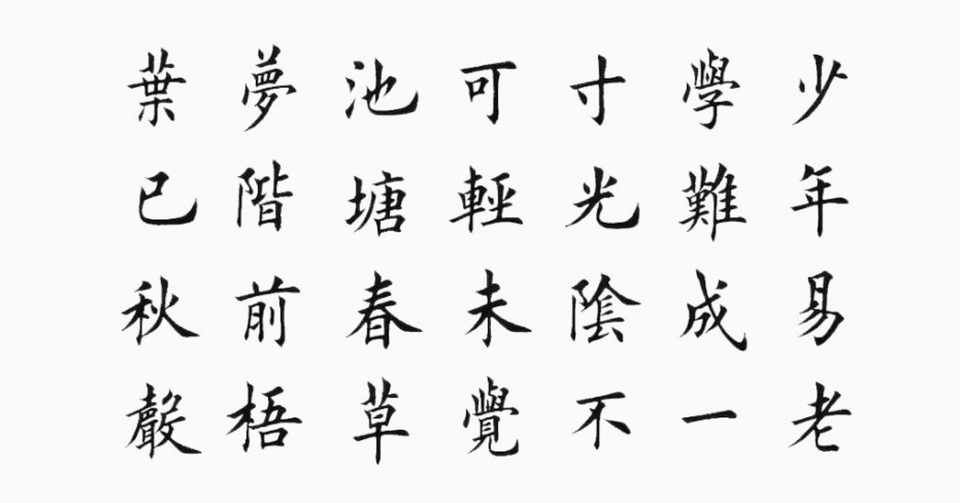 少年易老
學難成一
寸光陰不
可輕未覺
池塘春草
夢階前梧
葉已秋聲